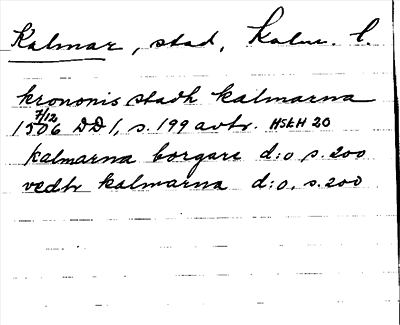 Kalmar, stad, Kalm. l.
krononis stadh kalmarna
7/12
1506 DD 1, s. 199 avtr. HSkH 20
kalmarna borgare d:o, s. 200
vedh kalmarna d:o, s. 200